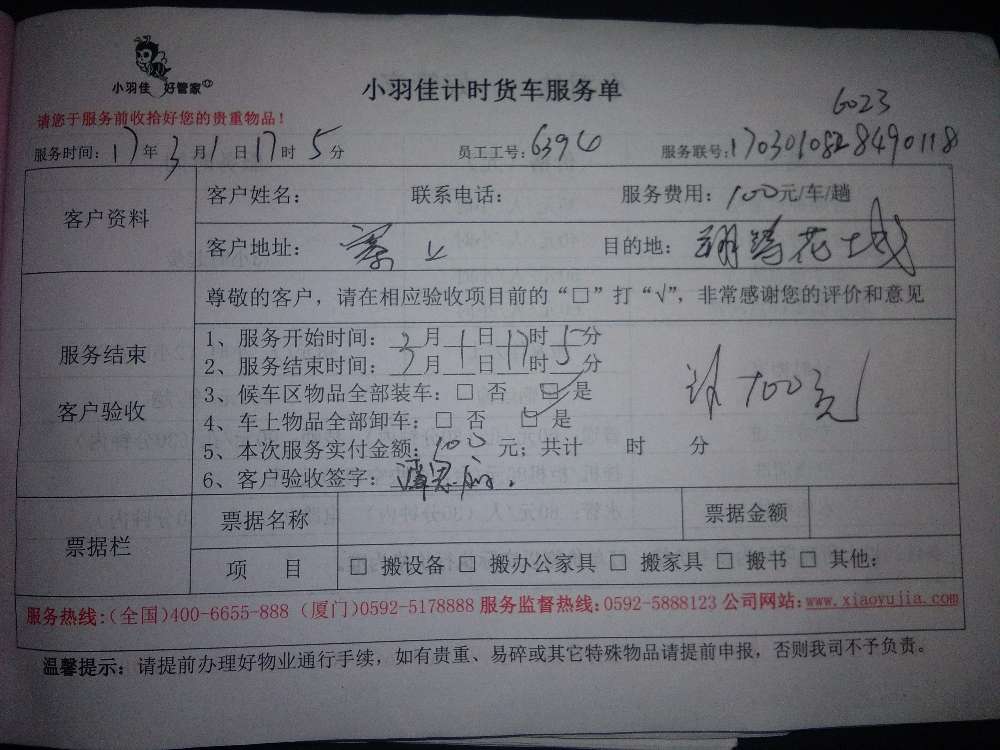 小羽佳 好管家
小羽佳计时货车服务单
6023
请您于服务前收拾好您的贵重物品！
服务时间：17年3月1日17时5分 员工工号：6394 服务联号：1703010828490118
客户资料
客户姓名： 联系电话： 服务费用：100元/车/趟
客户地址：寨上 目的地：翔鹭花城
服务结束
客户验收
尊敬的客户，请在相应验收项目前的“□”打“√”，非常感谢您的评价和意见
1、服务开始时间：3月1日17时5分
2、服务结束时间：3月1日17时5分
3、候车区物品全部装车：□ 否 ☑ 是
4、车上物品全部卸车：□ 否 ☑ 是
5、本次服务实付金额：100元；共计 时 分
6、客户验收签字：
100元
票据栏
票据名称 票据金额
项 目 □ 搬设备 □ 搬办公家具 □ 搬家具 □ 搬书 □ 其他：
服务热线：（全国）400-6655-888（厦门）0592-5178888 服务监督热线：0592-5888123 公司网站：www.xiaoyujia.com
温馨提示：请提前办理好物业通行手续，如有贵重、易碎或其它特殊物品请提前申报，否则我司不予负责。